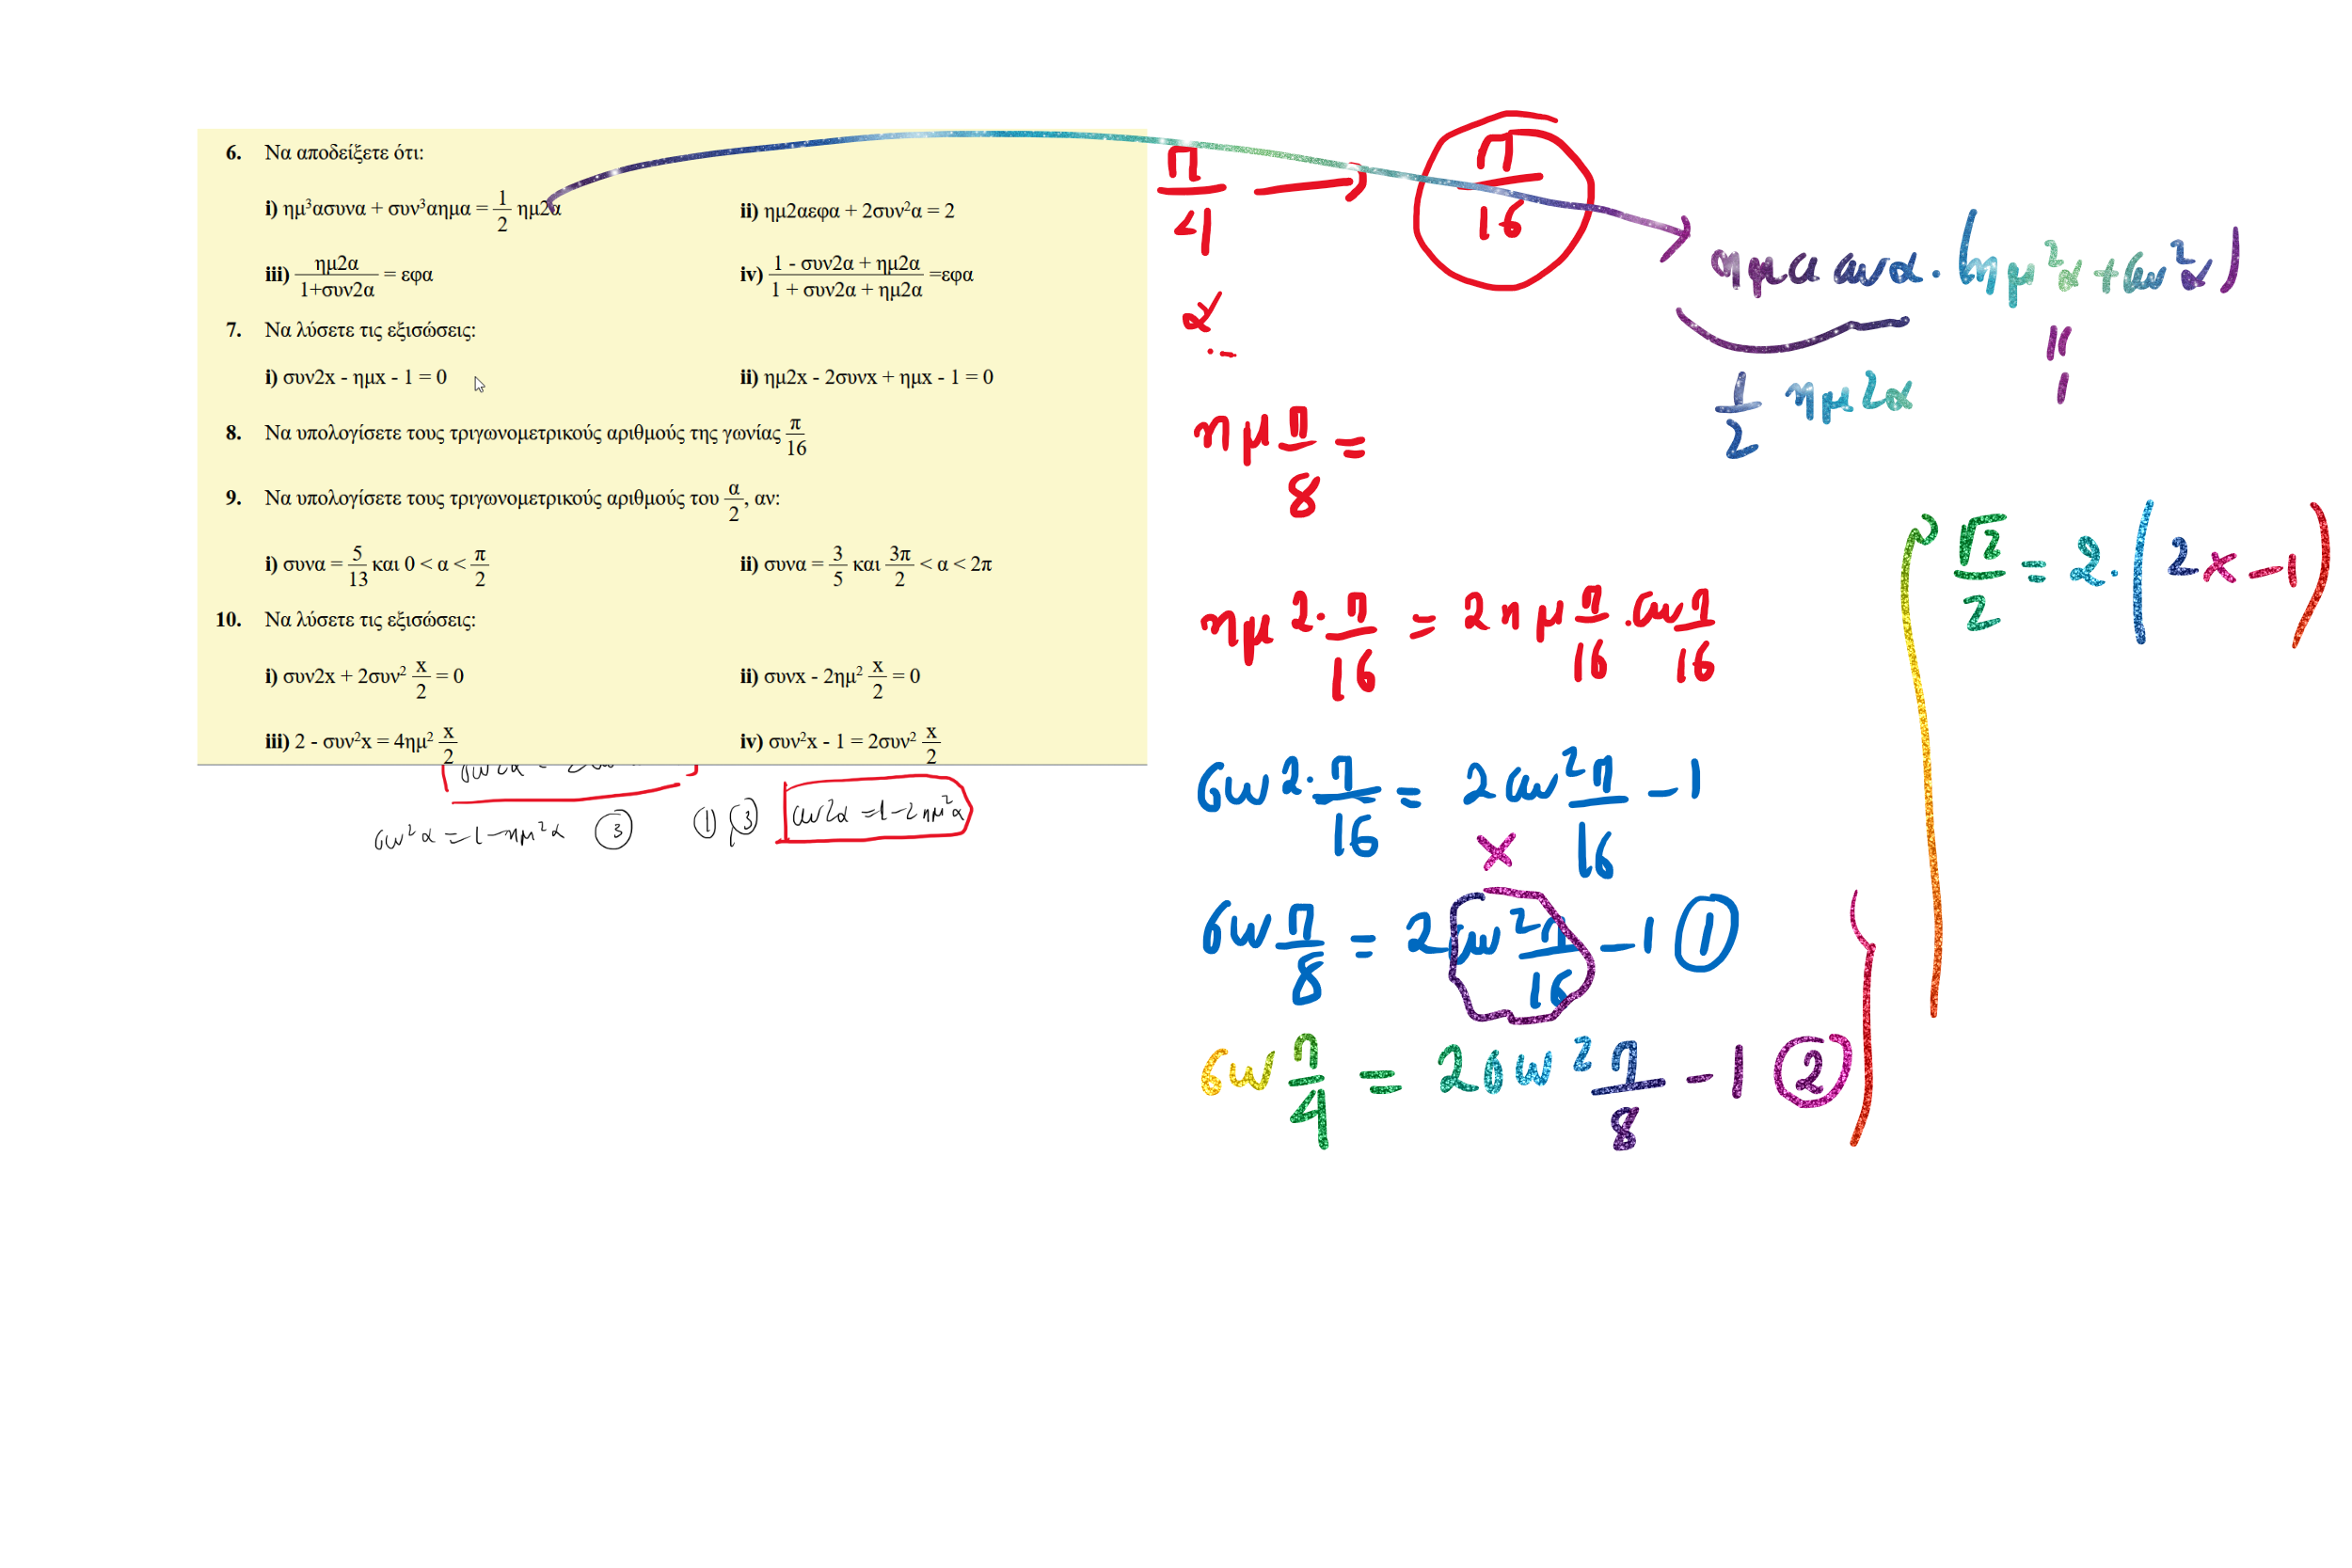 6. Να αποδείξετε ότι:
i) ημ³ασυνα + συν³αημα = 1/2 ημ2α
ii) ημ2αεφα + 2συν²α = 2
iii) ημ2α/1+συν2α = εφα
iv) 1 - συν2α + ημ2α/1 + συν2α + ημ2α =εφα
7. Να λύσετε τις εξισώσεις:
i) συν2x - ημx - 1 = 0
ii) ημ2x - 2συνx + ημx - 1 = 0
8. Να υπολογίσετε τους τριγωνομετρικούς αριθμούς της γωνίας π/16
9. Να υπολογίσετε τους τριγωνομετρικούς αριθμούς του α/2, αν:
i) συνα = 5/13 και 0 < α < π/2
ii) συνα = 3/5 και 3π/2 < α < 2π
10. Να λύσετε τις εξισώσεις:
i) συν2x + 2συν² x/2 = 0
ii) συνx - 2ημ² x/2 = 0
iii) 2 - συν²x = 4ημ² x/2
iv) συν²x - 1 = 2συν² x/2
συν²α = 1-ημ²α ③
① ③ συν2α = 1-2ημ²α
π/4 → π/16
α
ημα συνα·(ημ²α + συν²α)
1/2 ημ2α
= 1
ημ π/8 =
ημ 2·π/16 = 2ημ π/16 · συν π/16
συν 2·π/16 = 2συν² π/16 - 1
x
συν π/8 = 2συν² π/16 - 1 ①
συν π/4 = 2συν² π/8 - 1 ②
√2/2 = 2·(2x-1)